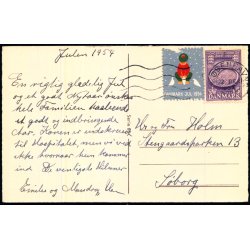 Julen 1954
En rigtig glædelig Jul
og et godt Nytaar ønskes
hele Familien
et godt og indbringende
Aar. Konen er indskrevet
til Hospitalet, men vi ved
ikke hvornaar hun kommer
ind. De venligste Hilsner
Emilie og
DANMARK JUL 1954
DANMARK
Hr og Fru Holm
Stengaardsparken 13
Søborg